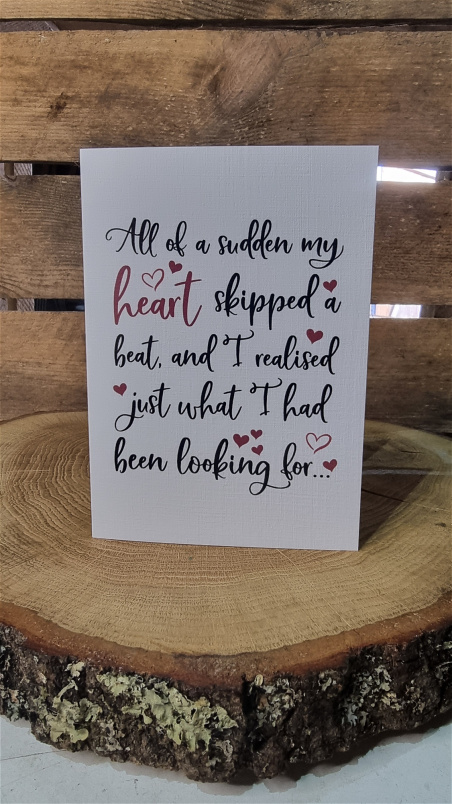 All of a sudden my
heart skipped a
beat, and I realised
just what I had
been looking for...